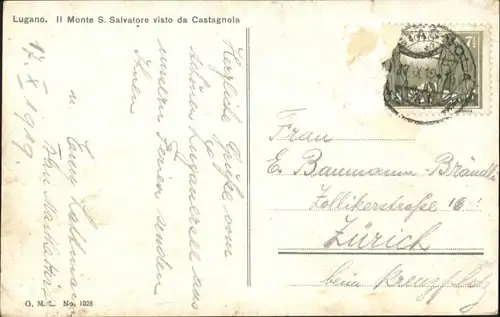 Lugano. Il Monte S. Salvatore visto da Castagnola
17. X 1919.
Herzliche Grüße vom
schönen Luganersee aus
unsern Ferien senden
Ihnen
u.
Frau
E. Baumann-Brändli
Zollikerstraße 16.
Zürich
beim Kreuzplatz
G. M. L. No. 1028
7½